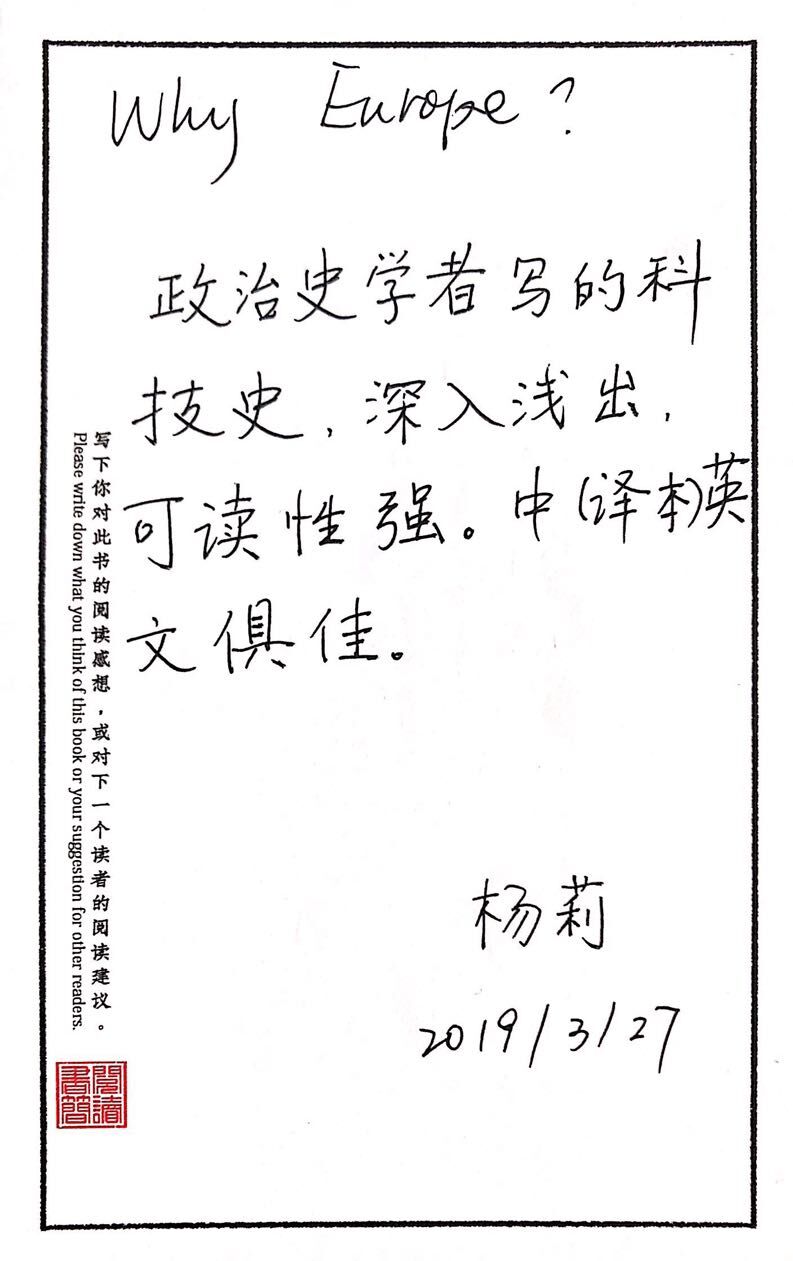 Why Europe?
政治史学者写的科
技史，深入浅出，
可读性强。中(译本)英
文俱佳。
杨莉
2019/3/27
写下你对此书的阅读感想，或对下一个读者的阅读建议。
Please write down what you think of this book or your suggestion for other readers.
閱讀
書簡